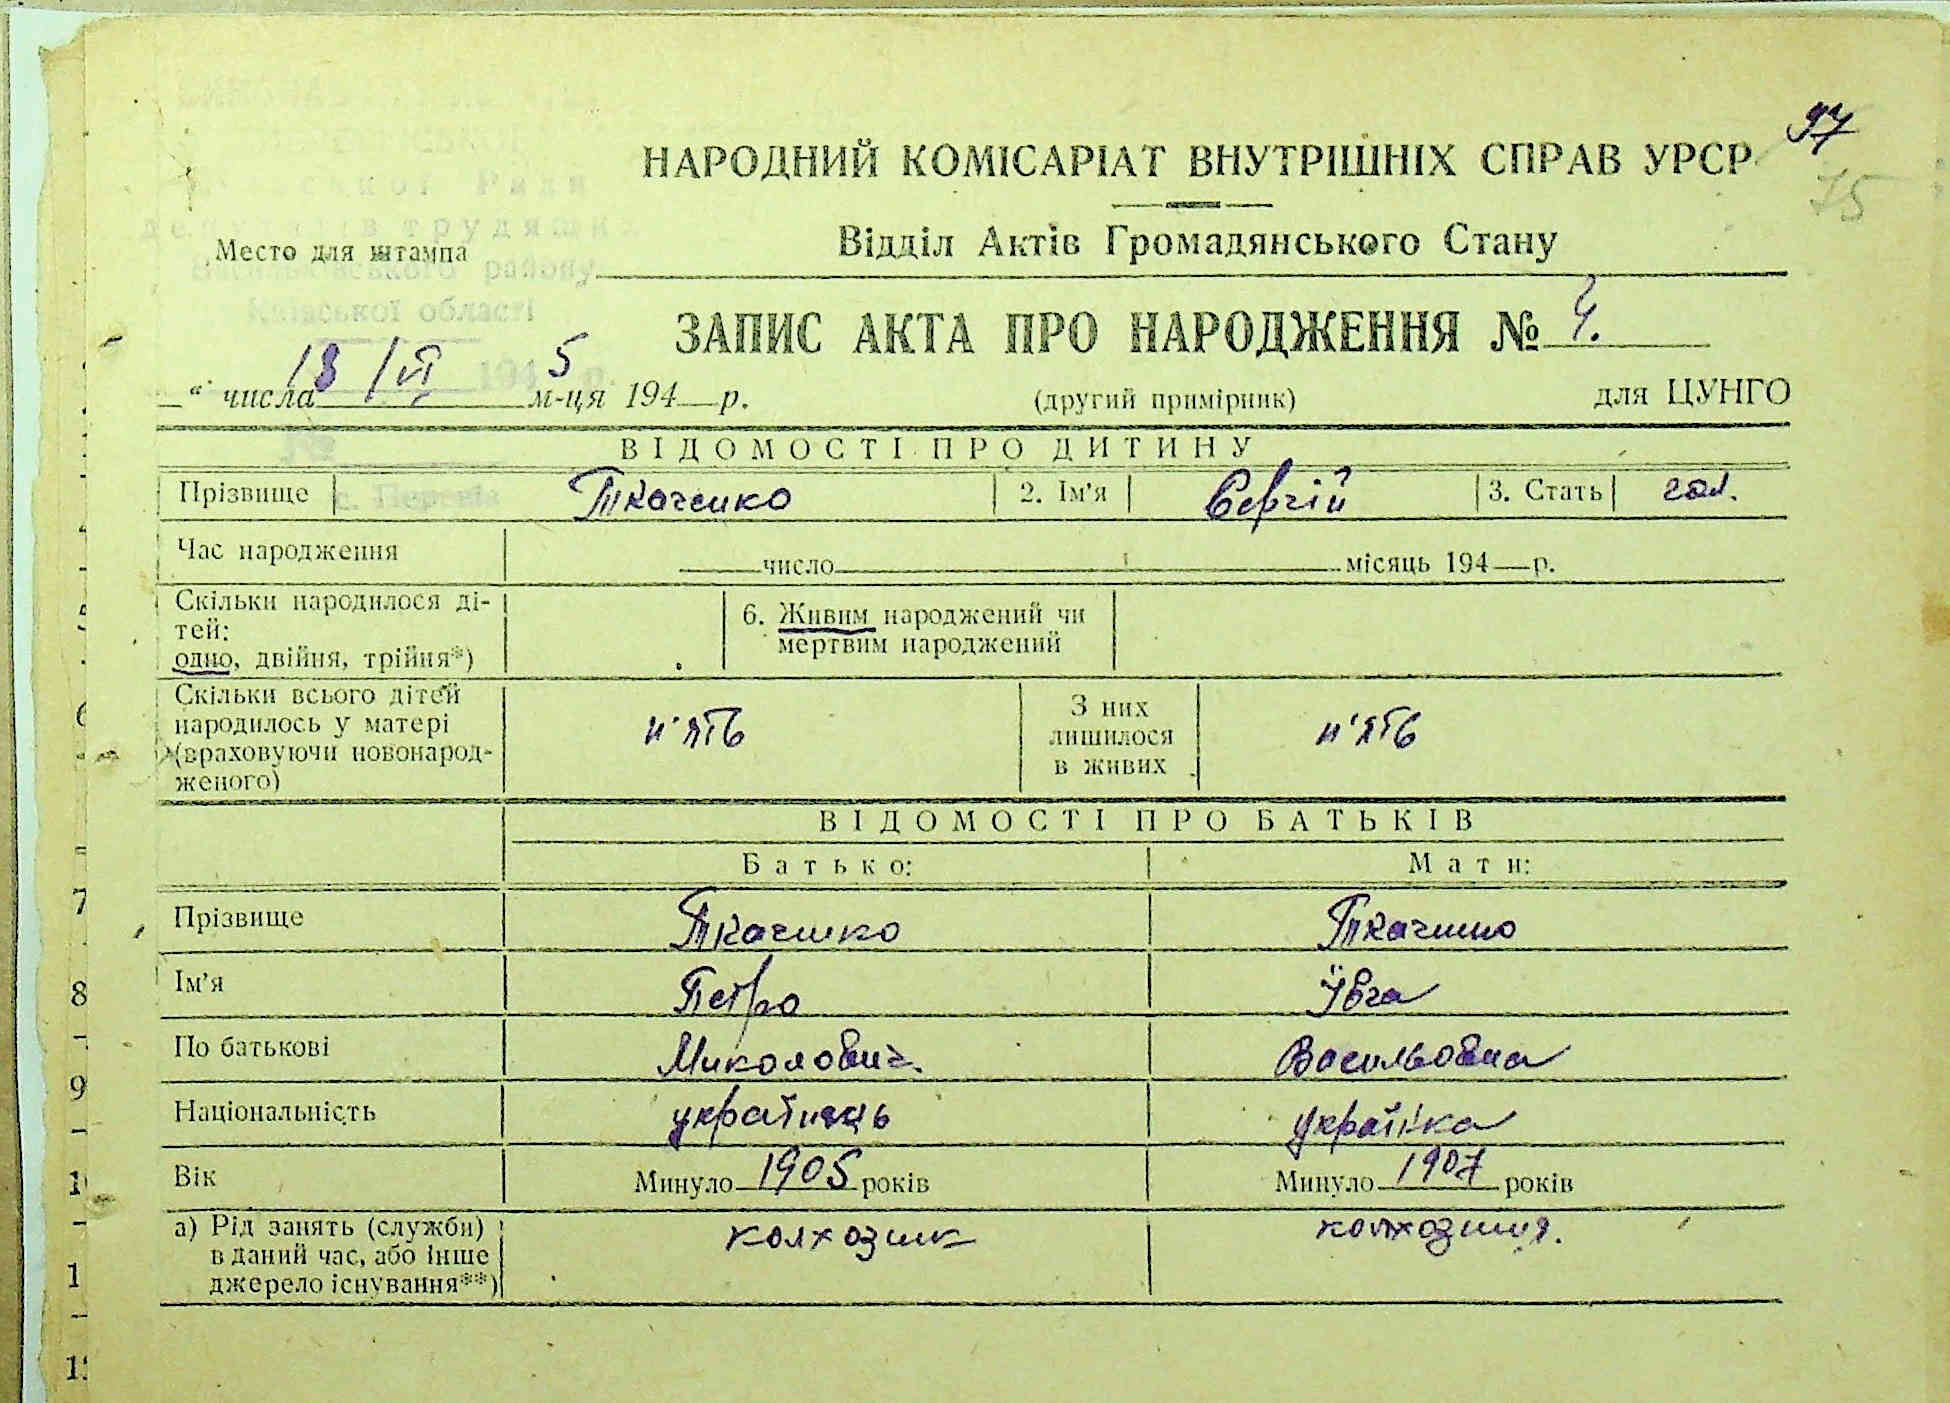 97
НАРОДНИЙ КОМІСАРІАТ ВНУТРІШНІХ СПРАВ УРСР
75
Місто для штампа
Відділ Актів Громадянського Стану
Київської області
ЗАПИС АКТА ПРО НАРОДЖЕННЯ № 4.
„ " числа 18/VI м-ця 1945 р.
(другий примірник) для ЦУНГО
ВІДОМОСТІ ПРО ДИТИНУ
Прізвище Ткаченко 2. Ім'я Сергій 3. Стать чол.
Час народження число місяць 194 р.
Скільки народилося ді-
тей:
одно, двійня, трійня*)
6. Живим народжений чи
мертвим народжений
Скільки всього дітей
народилось у матері
(враховуючи новонарод-
женого)
п'ять
З них
лишилося
в живих
п'ять
ВІДОМОСТІ ПРО БАТЬКІВ
Батько: Мати:
Прізвище Ткаченко Ткаченко
Ім'я Петро Ївга
По батькові Миколович. Васильовна
Національність українець українка
Вік Минуло 1905 років Минуло 1907 років
а) Рід занять (служби)
в даний час, або інше
джерело існування**)
колхозник колхозниця.